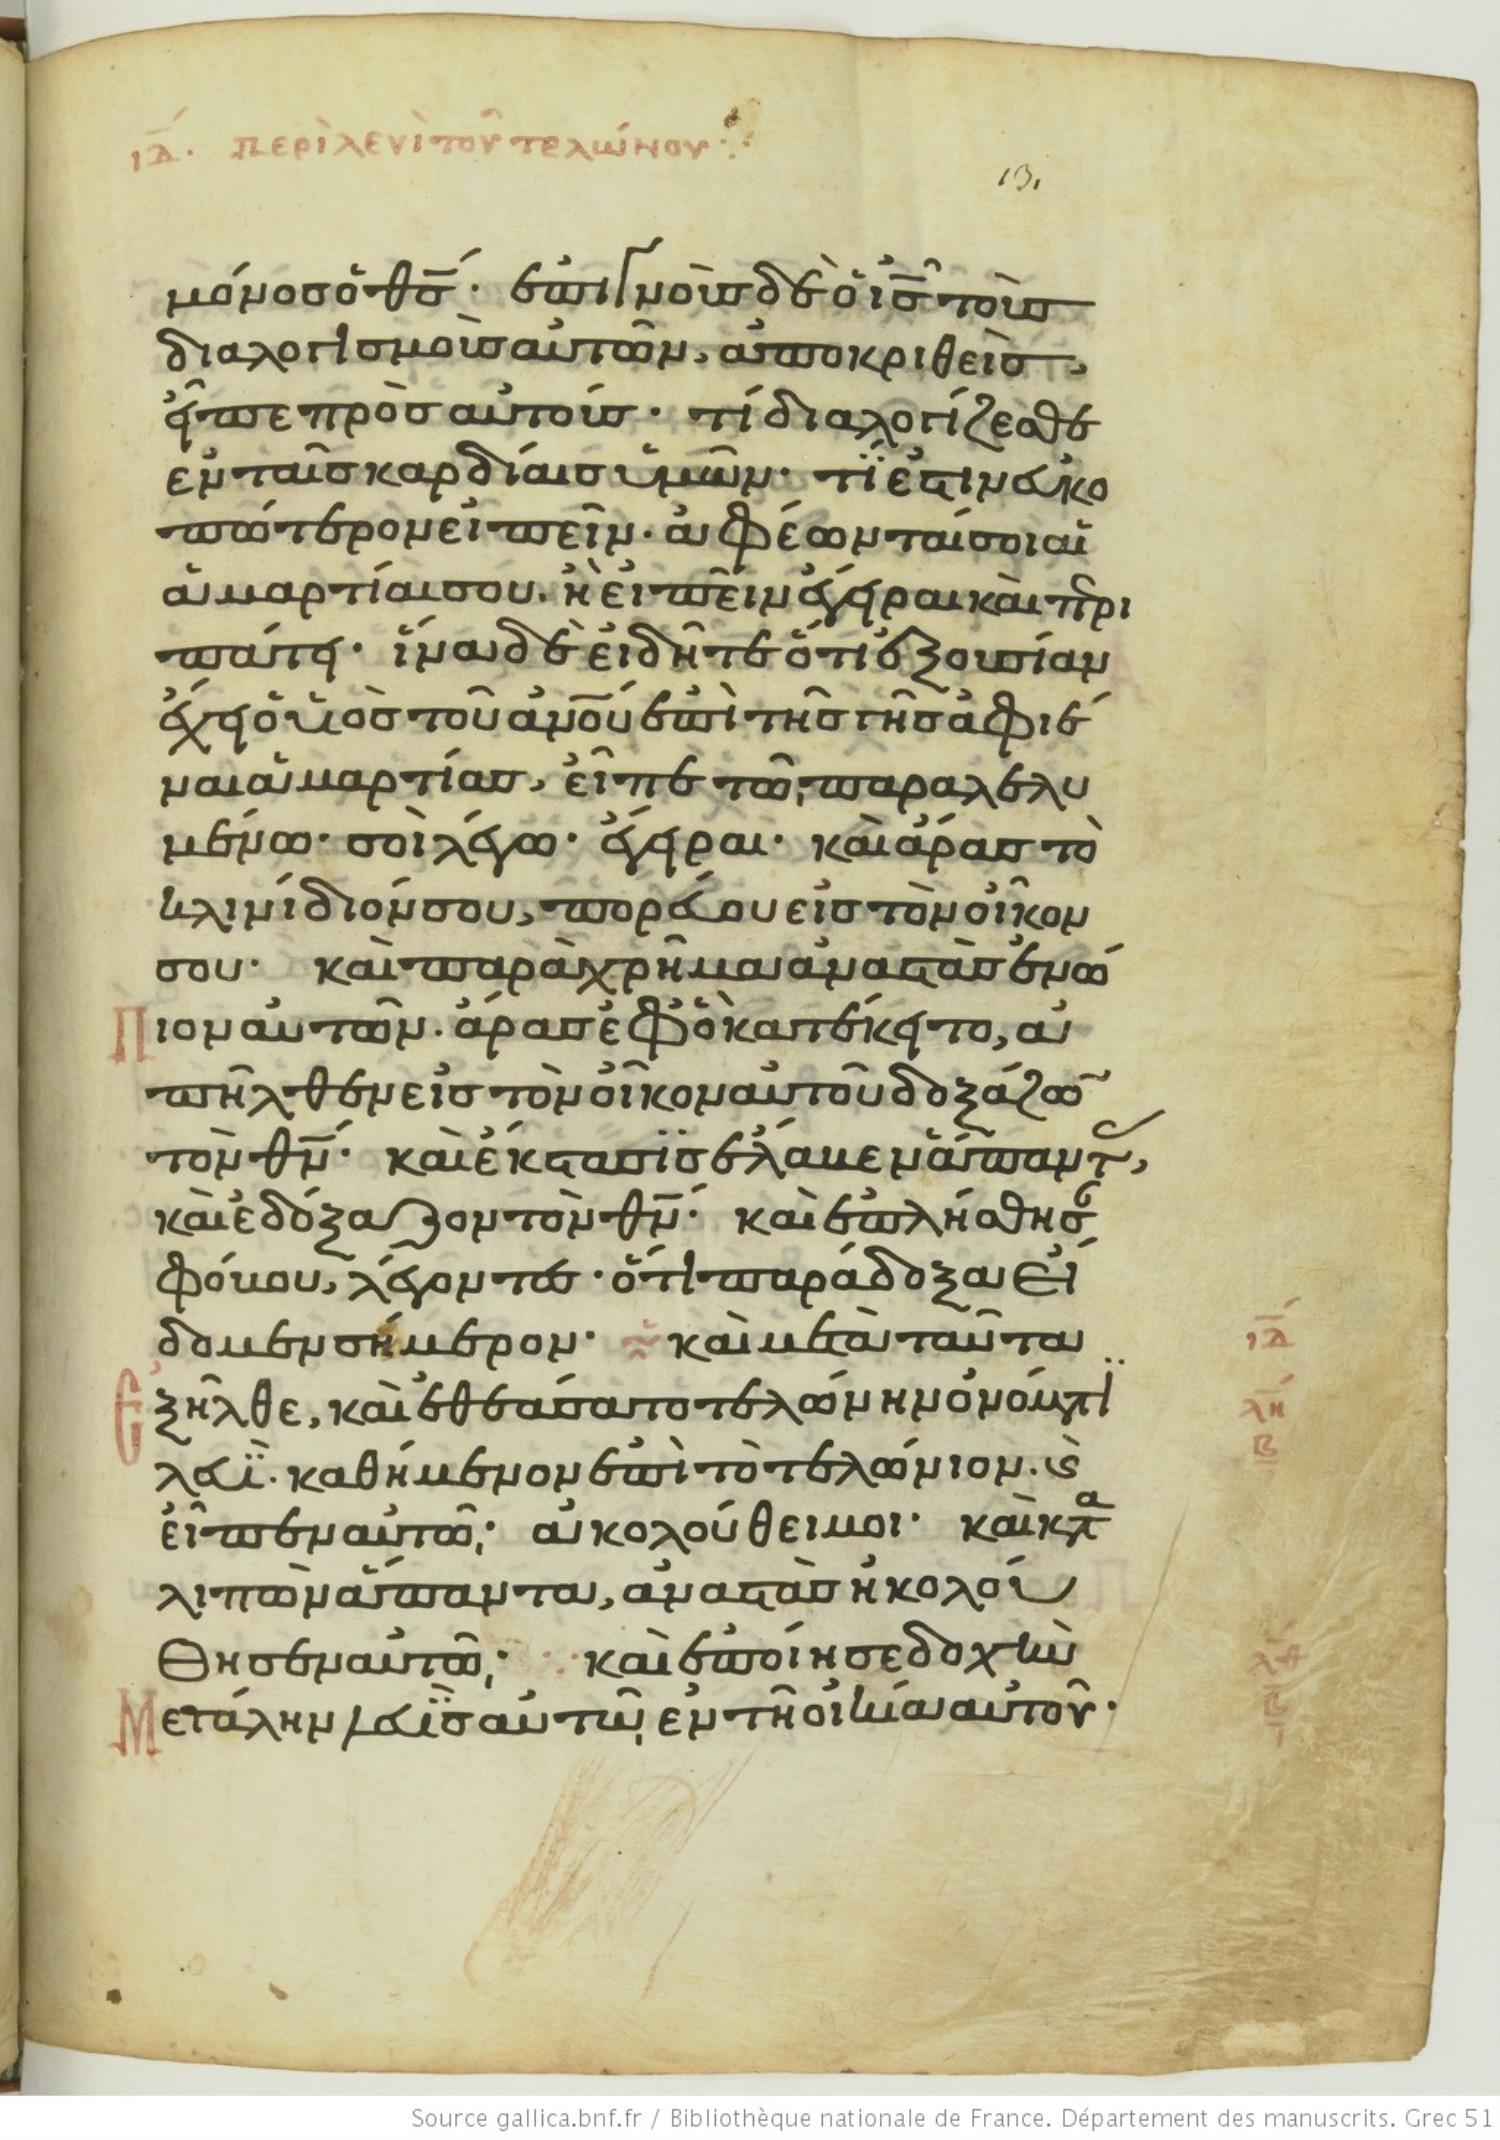 ιδ. περὶ λευὶ τοῦ τελώνου:
131
μόνος ὁ θς· ἐπιγνοὺς δὲ ὁ ις τοὺς
διαλογισμοὺς αὐτῶν, ἀποκριθεὶς,
εἶπε πρὸς αὐτούς· τί διαλογίζεσθε
ἐν ταῖς καρδίαις ὑμῶν· τί ἐστιν εὐκο
πώτερον εἰπεῖν· ἀφέωνταί σοι αἱ
ἁμαρτίαι σου. ἢ εἰπεῖν ἔγειραι καὶ πρι
πάτει· ἵνα δὲ εἰδῆτε ὅτι ἐξουσίαν
ἔχει ὁ υἱὸς τοῦ ανου ἐπὶ τῆς γῆς ἀφιέ
ναι ἁμαρτίας, εἶπε τῶ, παραλελυ
μένω· σοὶ λέγω· ἔγειραι· καὶ ἄρας τὸ
κλινίδιόν σου, πορεύου εἰς τὸν οἶκον
σου· καὶ παραχρῆμα ἀναστὰς ἐνώ
πιον αὐτῶν. ἄρας ἐφ' ὃ κατέκειτο, ἀ
πῆλθεν εἰς τὸν οἶκον αὐτοῦ δοξάζω
τὸν θν· καὶ ἔκστασις ἔλαβεν ἅπαντ,
καὶ ἐδόξαζον τὸν θν· καὶ ἐπλήσθησ
φόβου, λέγοντες· ὅτι παράδοξα εἴ
δομεν σήμερον· καὶ μετὰ ταῦτα
ἐξῆλθε, καὶ ἐθεάσατο τελώνην ὀνόματι
λευῒ· καθήμενον ἐπὶ τὸ τελώνιον. ϗ
εἶπεν αὐτῶ· ἀκολούθει μοι· καὶ κατα
λιπὼν ἅπαντα, ἀναστὰς ἠκολού
θησεν αὐτῶ· καὶ ἐποίησε δοχὴν
μετάλην λευῒς αὐτῶ, ἐν τῆ οἰκία αὐτοῦ·
ιδ
λη
β
λθ
β
Source gallica.bnf.fr / Bibliothèque nationale de France. Département des manuscrits. Grec 51